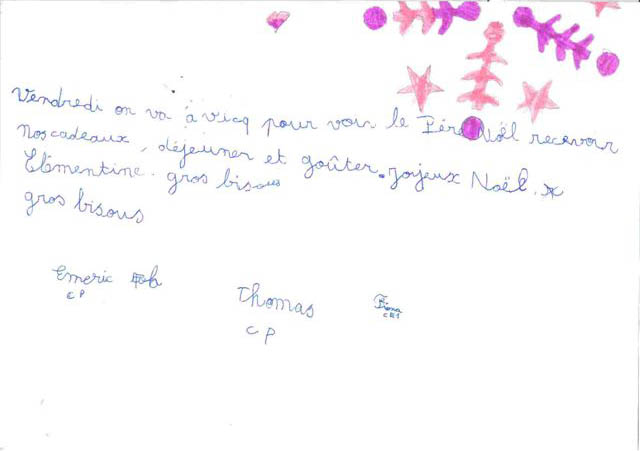 Vendredi on va à vicq pour voir le Père Noël recevoir
nos cadeaux, déjeuner et goûter. joyeux Noël.
Clémentine. gros bisous
gros bisous
Emeric
CP
Thomas
CP
Fiona
CE1